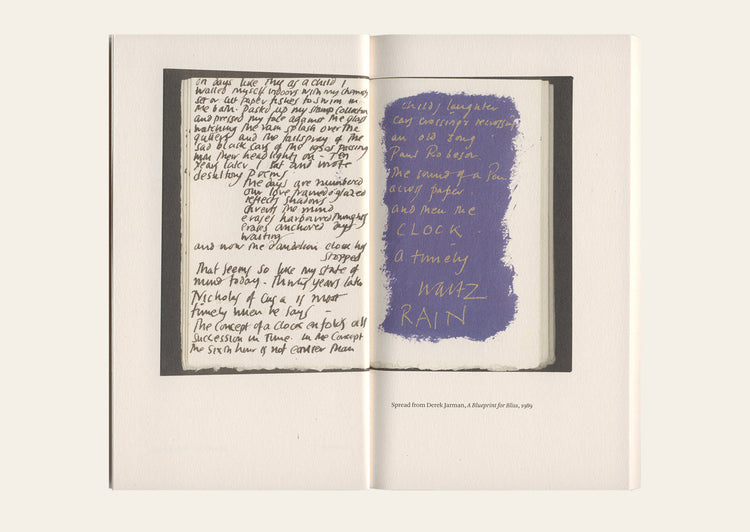 on days like this as a child I
walled myself indoors with my chemistry
set or cut paper fishes to swim in
the bath. Pasted up my stamp collection
and pressed my face against the glass
watching the rain splash over the
gutters and the tailspray of the
sad black cars of the 1950s passing
with their headlights on - Ten
years later I sat and wrote
desultory poems
The days are numbered
our love framed & glazed
reflects shadows
the mind
erases harboured thoughts
erases anchored days
waiting
and now the dandelion clock has
stopped
That seems so like my state of
mind today. Thirty years later
Nicholas of Cusa is most
timely when he says -
The concept of a clock enfolds all
succession in Time. In the Concept
the sixth hour is not earlier than
childs laughter
Cars crossing & recrossing
an old song
Paul Robeson
The sound of a Pen
across paper.
and then the
CLOCK -
a timely
WALTZ
RAIN
Spread from Derek Jarman, A Blueprint for Bliss, 1989